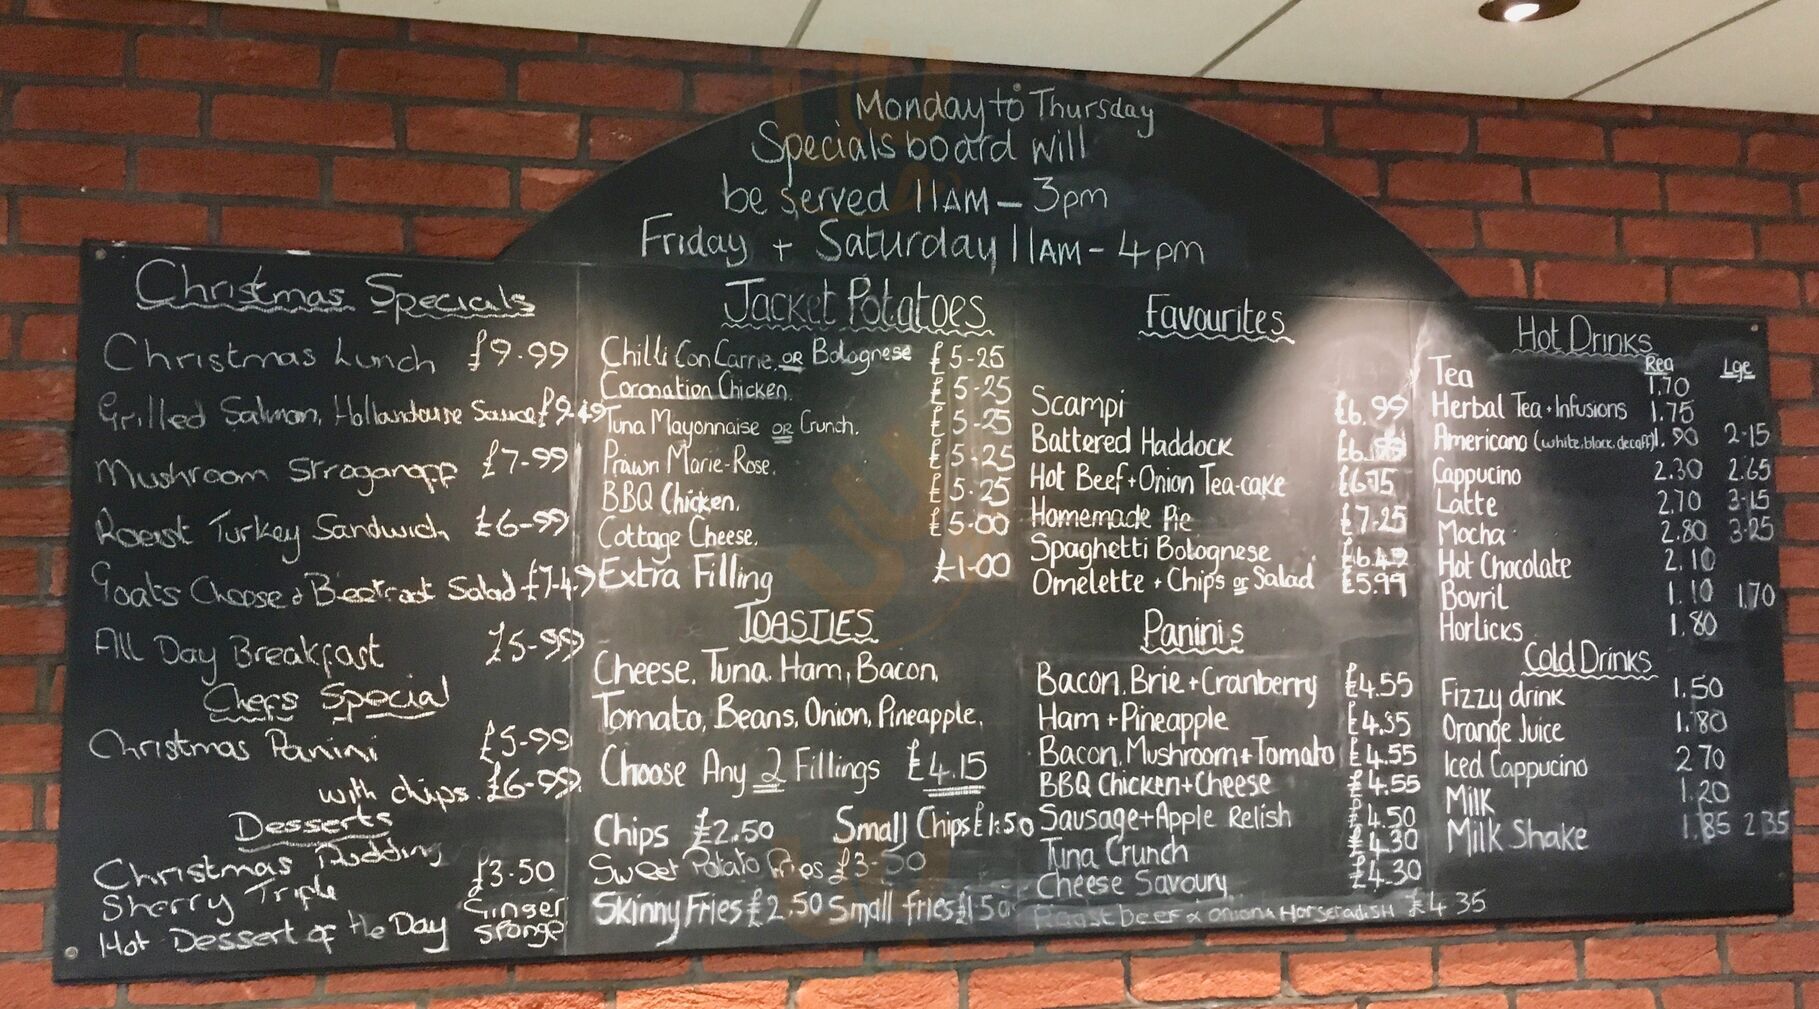 Monday to Thursday
Specials board will
be served 11AM - 3pm
Friday + Saturday 11AM - 4pm
Christmas Specials
Christmas Lunch £9.99
Grilled Salmon, Hollandaise Sauce £9.49
Mushroom Stroganoff £7-99
Roast Turkey Sandwich £6-99
Goats Cheese & Beetroot Salad £7-49
All Day Breakfast £5-99
Chefs Special
Christmas Panini £5-99
with chips. £6-99
Desserts
Christmas Pudding
Sherry Triple £3.50
Hot Dessert of the Day Ginger Sponge
Jacket Potatoes
Chilli Con Carne or Bolognese £5-25
Coronation Chicken. £5-25
Tuna Mayonnaise or Crunch. £5-25
Prawn Marie-Rose. £5-25
BBQ Chicken. £5-25
Cottage Cheese. £5-00
Extra Filling £1-00
TOASTIES
Cheese, Tuna, Ham, Bacon,
Tomato, Beans, Onion, Pineapple.
Choose Any 2 Fillings £4.15
Chips £2.50 Small Chips £1.50
Sweet Potato Fries £3-50
Skinny Fries £2.50 Small fries £1.50
Favourites
Scampi £6.99
Battered Haddock
Hot Beef + Onion Tea-cake £6.75
Homemade Pie £7-25
Spaghetti Bolognese £6.49
Omelette + Chips or Salad £5.99
Paninis
Bacon, Brie + Cranberry £4.55
Ham + Pineapple £4.35
Bacon, Mushroom + Tomato £4.55
BBQ Chicken + Cheese £4.55
Sausage + Apple Relish £4.50
Tuna Crunch £4.30
Cheese Savoury £4.30
Roast beef & onion & Horseradish £4 35
Hot Drinks
Reg Lge
Tea 1.70
Herbal Tea + Infusions 1.75
Americano (white, black, decaff) 1.90 2-15
Cappucino 2.30 2.65
Latte 2.70 3-15
Mocha 2.80 3-25
Hot Chocolate 2.10
Bovril 1.10 1.70
Horlicks 1.80
Cold Drinks
Fizzy drink 1.50
Orange Juice 1.80
Iced Cappucino 2 70
Milk 1.20
Milk Shake 1.85 2 35